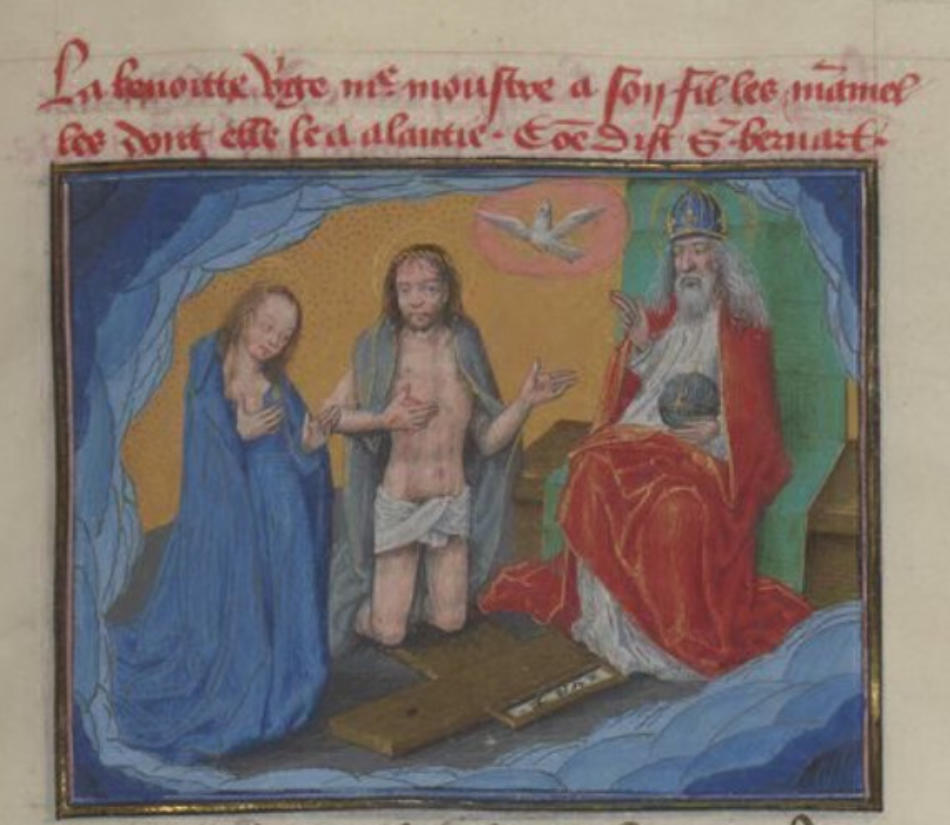 La benoitte v'ge m̃e monstre a son fil les mãmel
les dont elle le a alaittie. Cõe dist S. bernart.